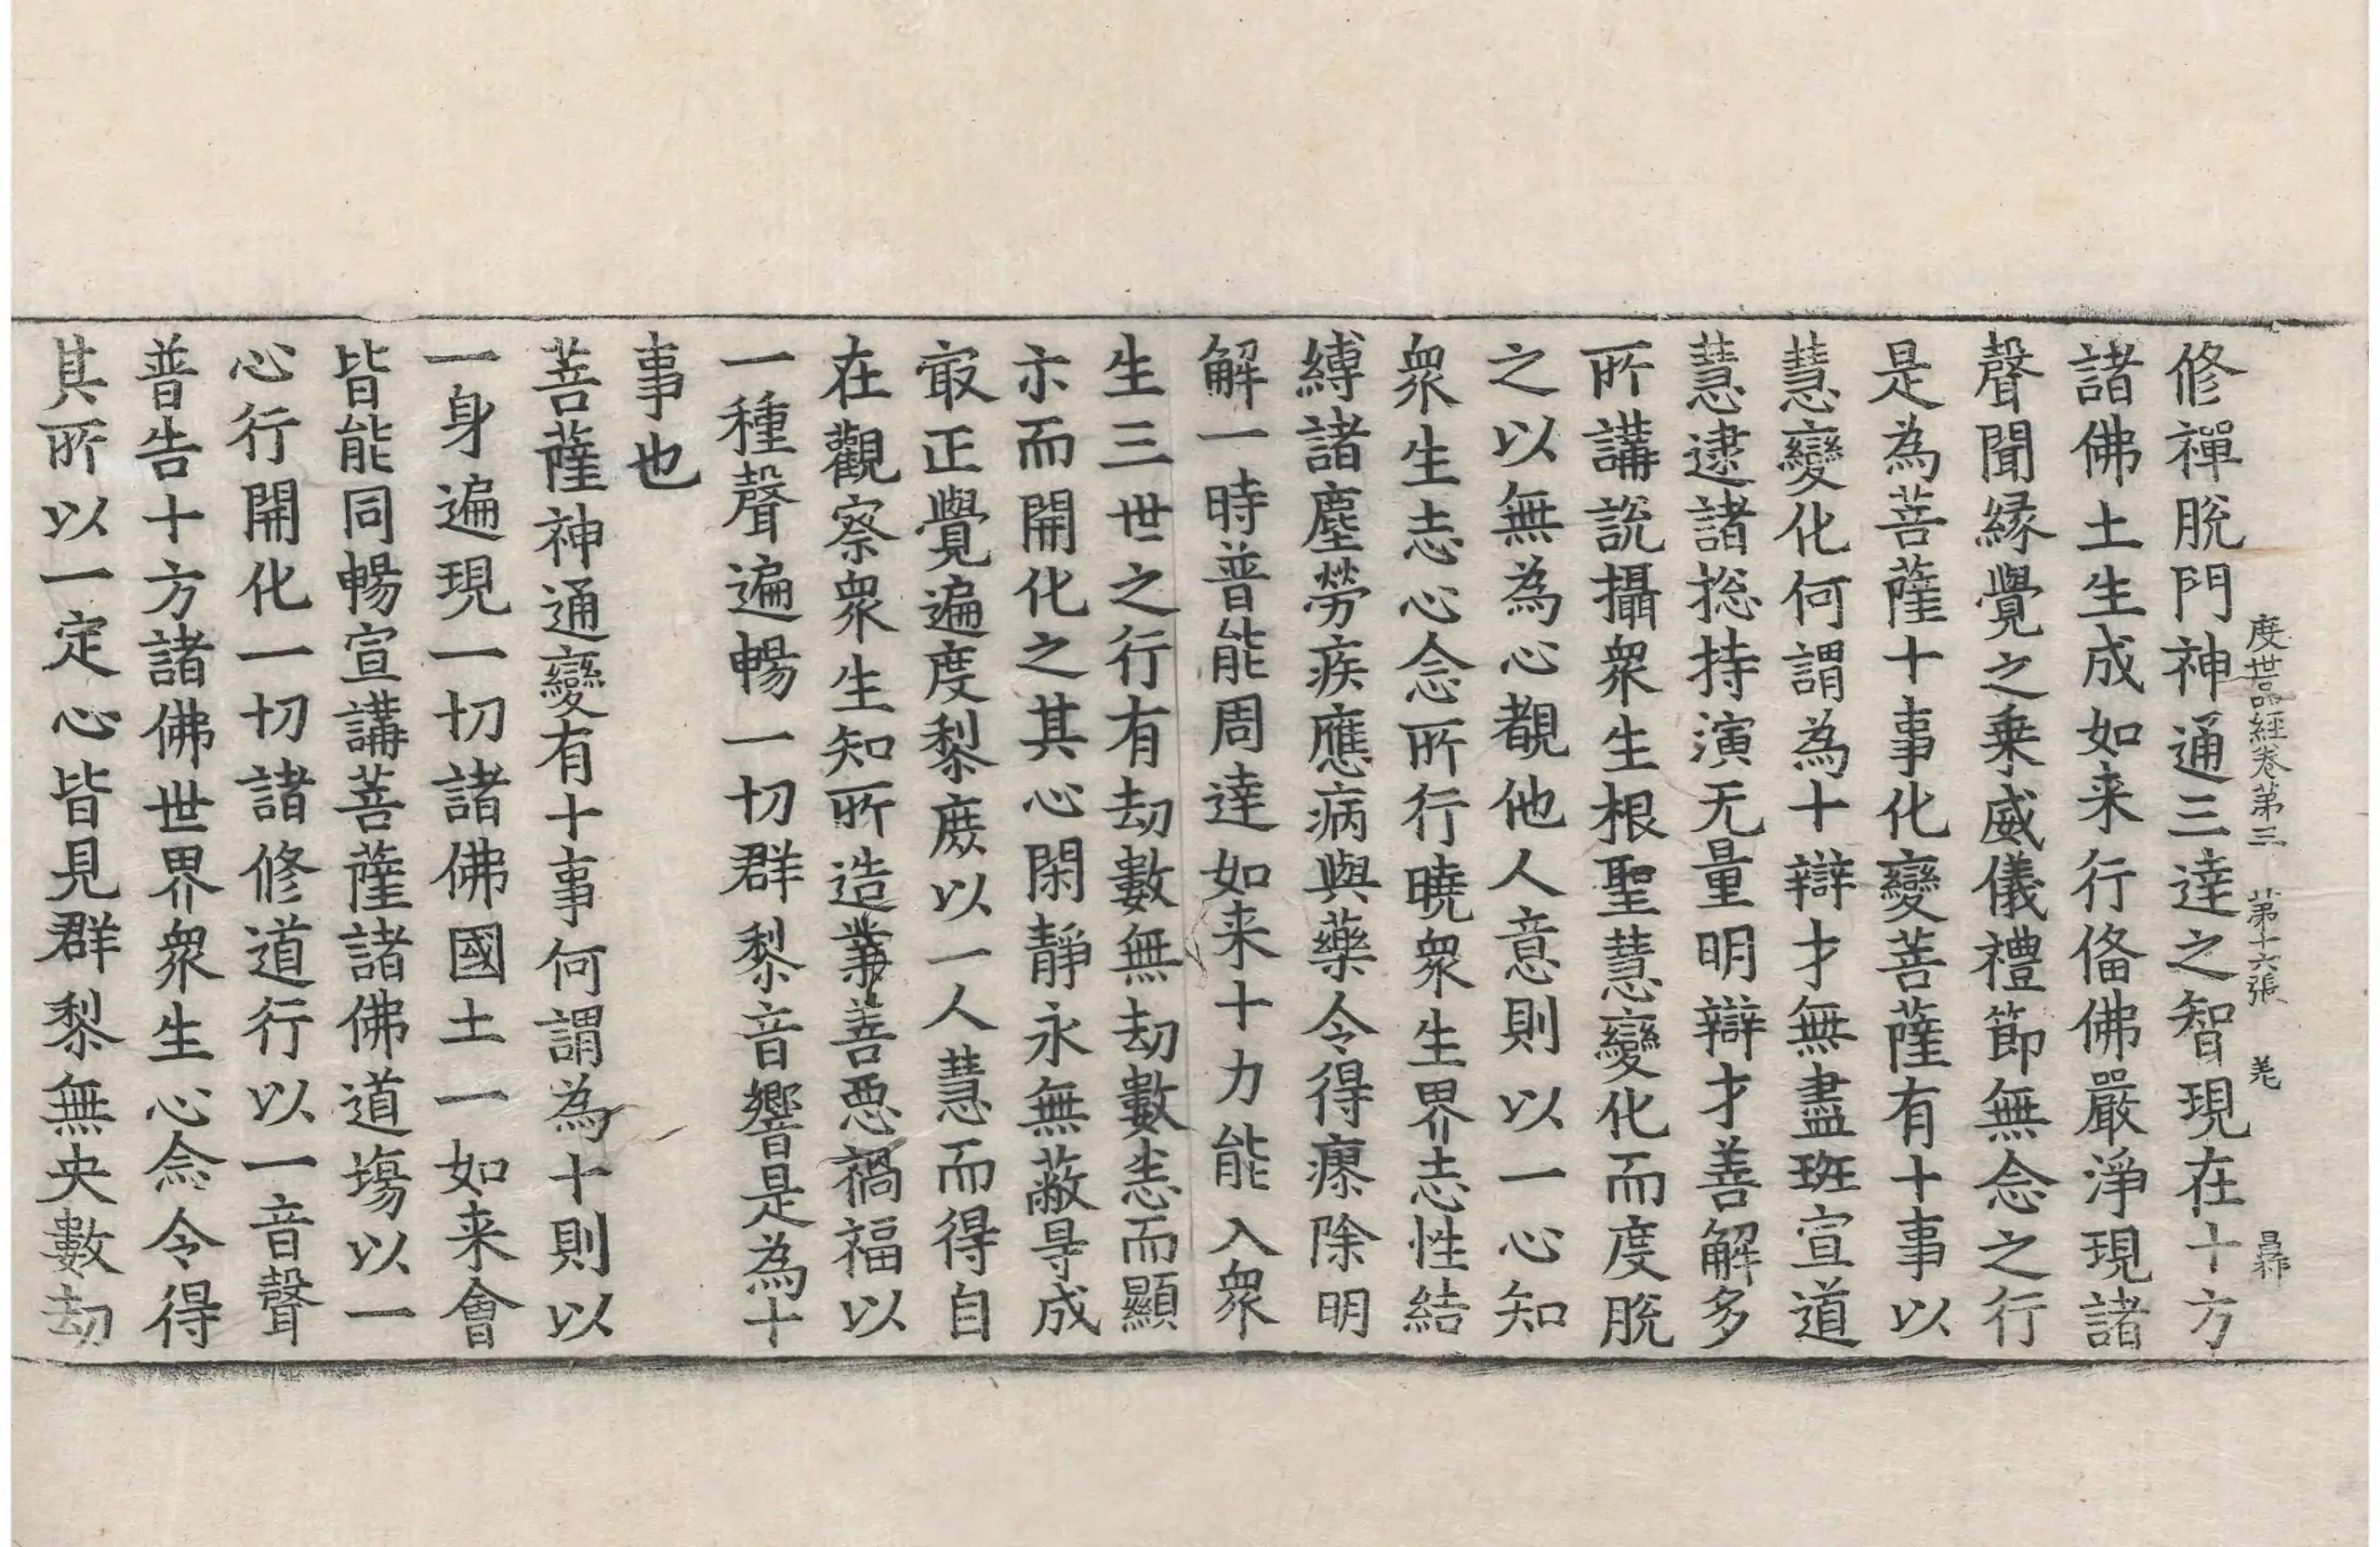 度世品經卷第三　第十六張　羌
修禪脫門神通三達之智現在十方
諸佛土生成如来行俻佛嚴淨現諸
聲聞縁覺之乗威儀禮節無念之行
是為菩薩十事化變菩薩有十事以
慧變化何謂為十辯才無盡班宣道
慧逮諸捴持演无量明辯才善解多
所講說攝衆生根聖慧變化而度脫
之以無為心覩他人意則以一心知
衆生志心念所行曉衆生界志性結
縛諸塵勞疾應病與藥令得瘳除明
解一時普能周達如来十力能入衆
生三世之行有劫數無劫數悉而顯
示而開化之其心閑静永無蔽㝵成
㝡正覺遍度黎庶以一人慧而得自
在觀察衆生知所造業善惡禍福以
一種聲遍暢一切群黎音響是為十
事也
菩薩神通變有十事何謂為十則以
一身遍現一切諸佛國土一如来會
皆能同暢宣講菩薩諸佛道塲以一
心行開化一切諸修道行以一音聲
普告十方諸佛世界衆生心念令得
其所以一定心皆見群黎無央數劫